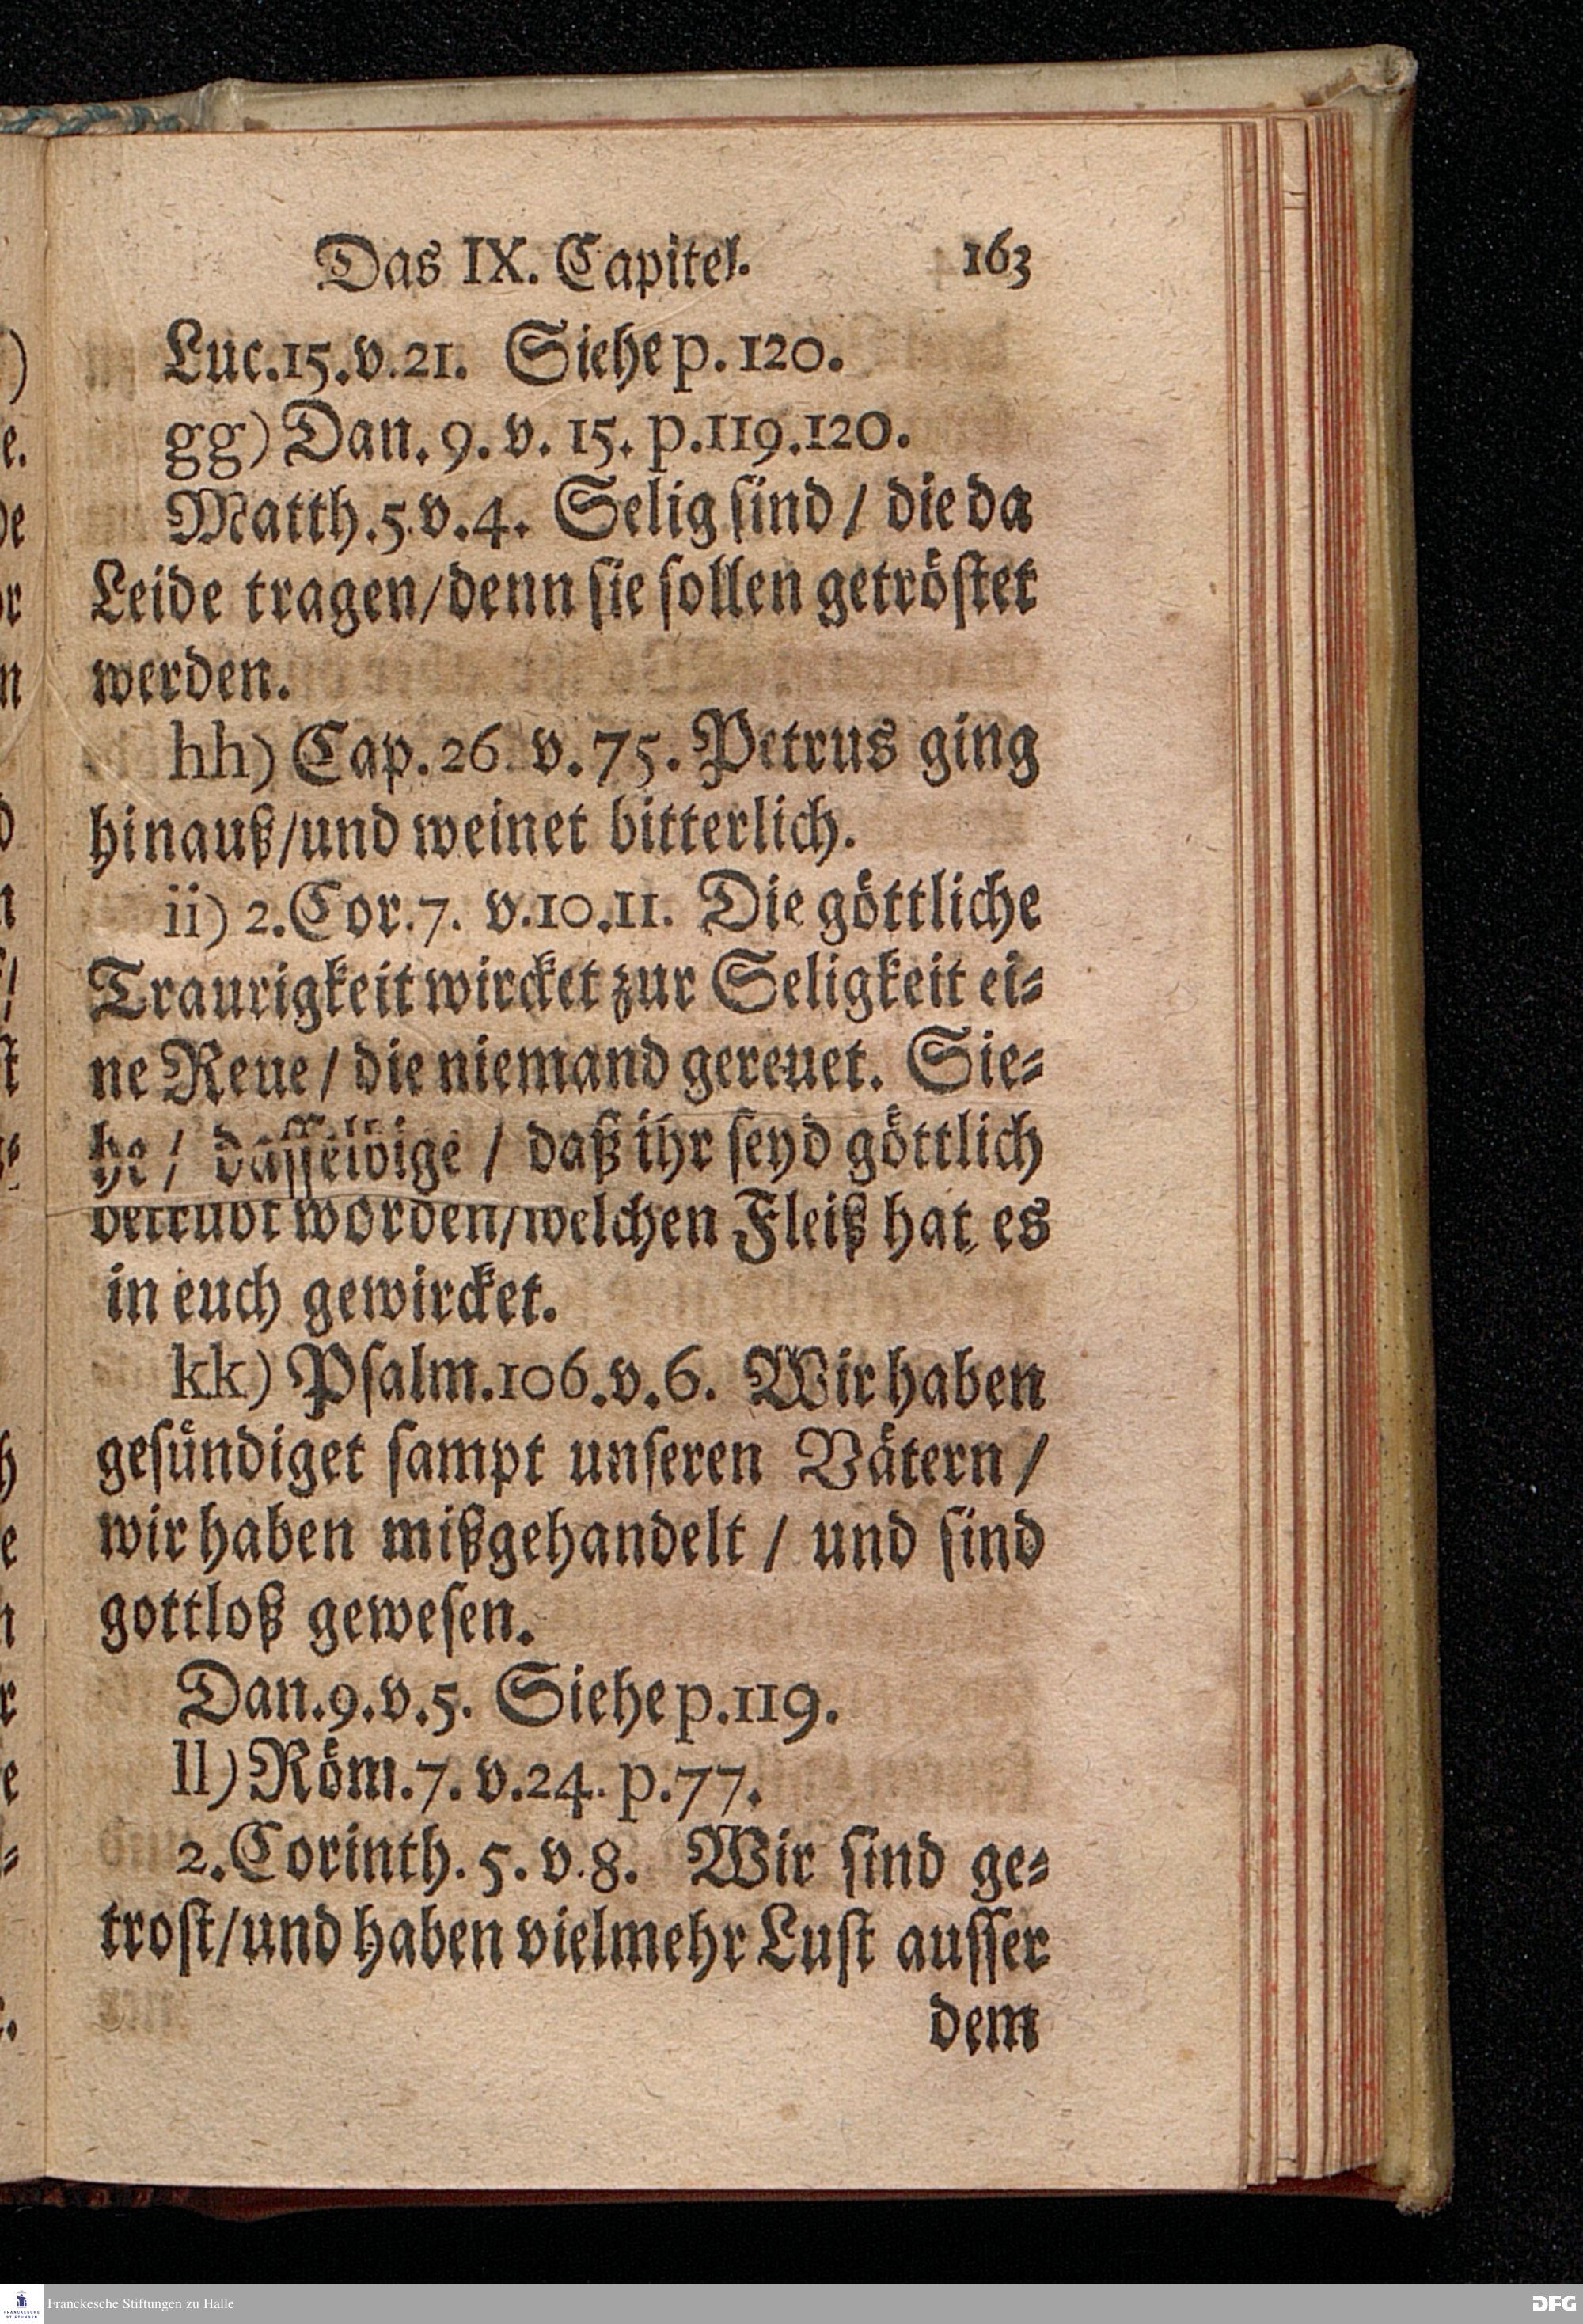 Das IX. Capitel. 163
Luc.15.v.21. Siehe p. 120.
gg) Dan. 9. v. 15. p.119.120.
Matth.5.v.4. Selig sind / die da
Leide tragen/denn sie sollen getröstet
werden.
hh) Cap. 26. v. 75. Petrus ging
hinauß/und weinet bitterlich.
ii) 2.Cor.7. v.10.11. Die göttliche
Traurigkeit wircket zur Seligkeit ei-
ne Reue / die niemand gereuet. Sie-
he / dasselbige / daß ihr seyd göttlich
betrubt worden/welchen Fleiß hat es
in euch gewircket.
kk) Psalm.106.v.6. Wir haben
gesündiget sampt unseren Vätern /
wir haben mißgehandelt / und sind
gottloß gewesen.
Dan.9.v.5. Siehe p.119.
ll) Röm.7. v.24. p.77.
2.Corinth. 5. v.8. Wir sind ge-
trost/und haben vielmehr Lust ausser
dem
Franckesche Stiftungen zu Halle
DFG